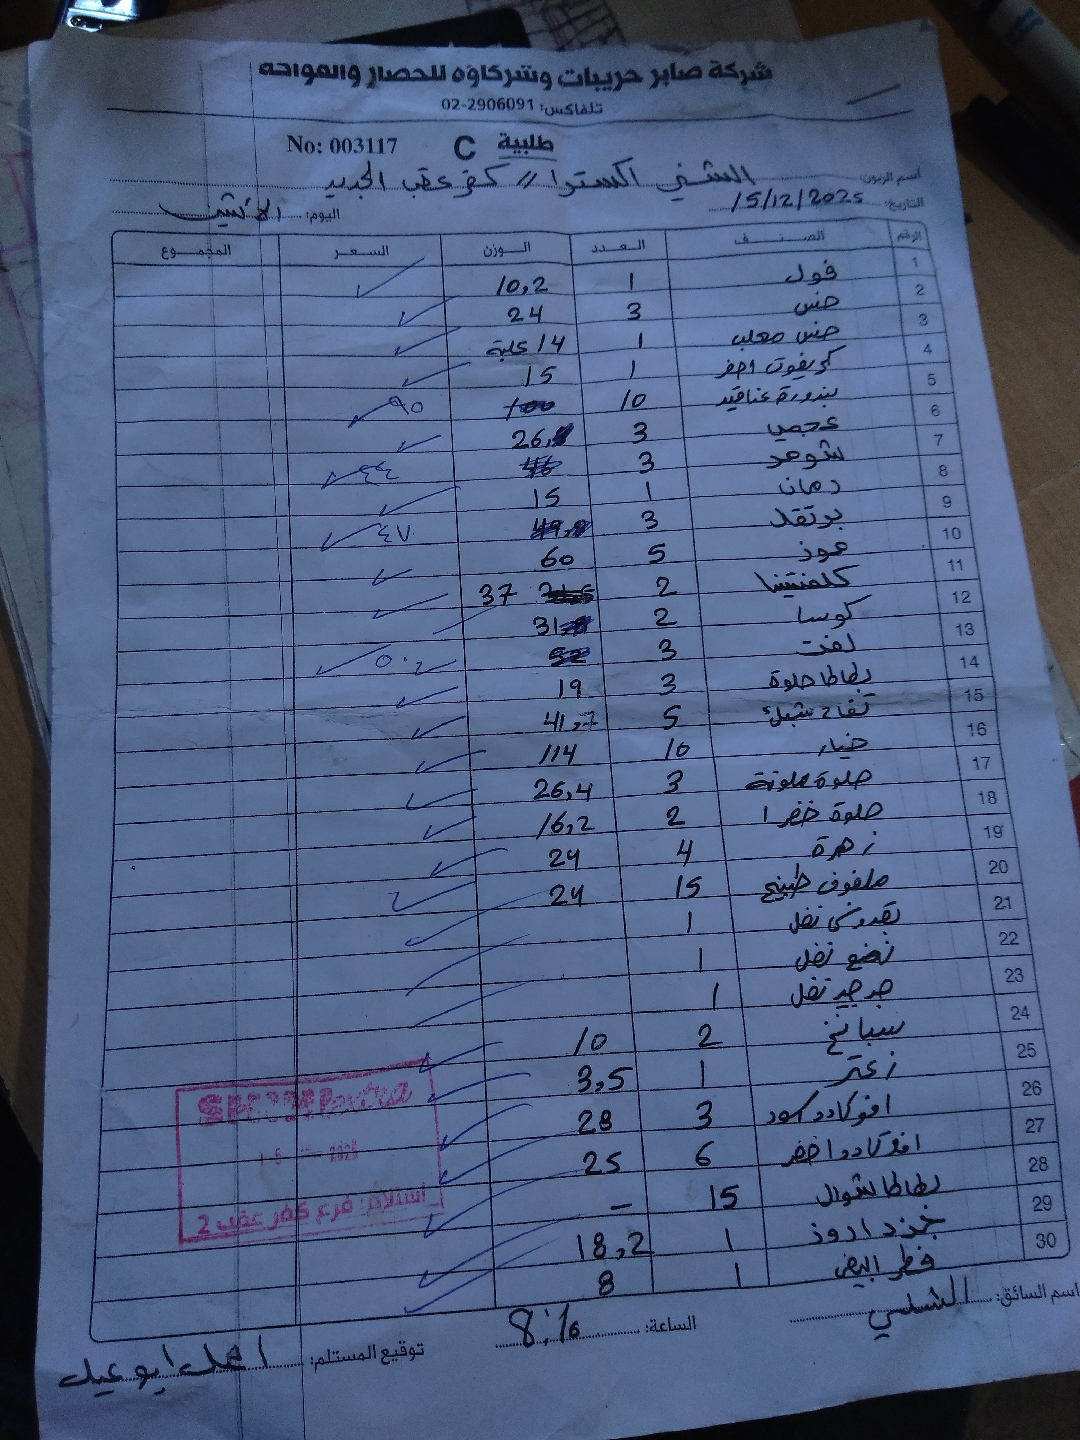 شركة صابر حريبات وشركاؤه للخضار والفواكه
تلفاكس: 02-2906091
No: 003117 C طلبية
اسم الزبون: الشني اكسترا // كفر عقب الجديد
التاريخ: 15/12/2025 اليوم: الاثنين
الرقم الصنف العدد الوزن السعر المجموع
1 فول 1 10,2
2 خس 3 24
3 خس معلب 1 14 علبة
4 كريفوت اخضر 1 15
5 بندورة عناقيد 10 100 ٩٥
6 عجمي 3 26
7 شومر 3 46 ٤٤
8 رمان 1 15
9 برتقال 3 ٤٧
10 موز 5 60
11 كلمنتينا 2 37
12 كوسا 2 31
13 لفت 3 52 ٥٠,٤
14 بطاطا حلوة 3 19
15 تفاح 5 41,7
16 خيار 10 114
17 حلوة ملونة 3 26,4
18 حلوة خضرا 2 16,2
19 زهرة 4 24
20 ملفوف طبيخ 15 24
21 بقدونس نفل 1
22 نعنع نفل 1
23 جرجير نفل 1
24 سبانخ 2 10
25 زعتر 1 3,5
26 افوكادو اسود 3 28
27 افوكادو اخضر 6 25
28 بطاطا شوال 15 –
29 جزر اروز 1 18,2
30 فطر ابيض 1 8
extra
15 2025
استلام: فرع كفر عقب 2
اسم السائق: الشلبي الساعة: 8:10 توقيع المستلم: